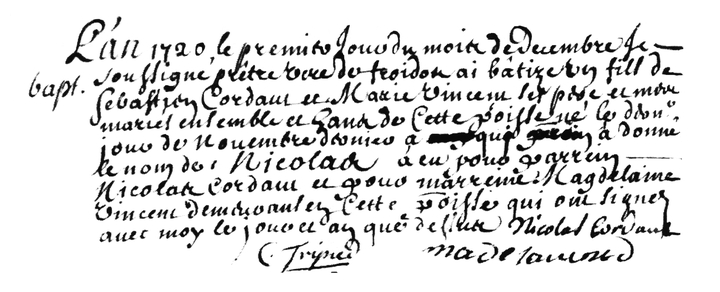 L'an 1720 le premier Jour du mois de Decembre Je
bapt. soussigné prêtre vic.re de froidos ai bâtizé un fill de
Sebastien Cordaut et Marie Vincent ses pere et mere
mariés ensemble et de Cette poisse né le
jour de Novembre dernier à qui à donné
le nom de Nicolas à eu pour parrein
Nicolas Cordaut et pour marreine Magdelaine
Vincent demeurans en Cette poisse qui ont signez
avec moy le jour et an que dessus Nicolas Cordaut